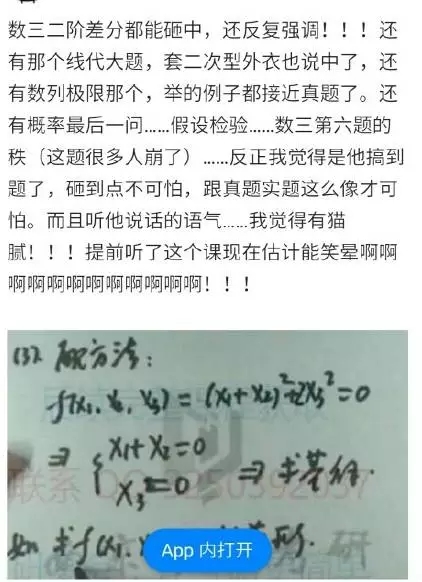 数三二阶差分都能砸中，还反复强调！！！还
有那个线代大题，套二次型外衣也说中了，还
有数列极限那个，举的例子都接近真题了。还
有概率最后一问......假设检验......数三第六题的
秩（这题很多人崩了）......反正我觉得是他搞到
题了，砸到点不可怕，跟真题实题这么像才可
怕。而且听他说话的语气......我觉得有猫
腻！！！提前听了这个课现在估计能笑晕啊啊
啊啊啊啊啊啊啊啊啊啊！！！
方法：
f(x₁, x₂, x₃) = (x₁+x₂)²+2x₃² = 0
⇒ { x₁+x₂=0
x₃=0 ⇒ 求基础
联系
如 求f(x₁,
App 内打开
研